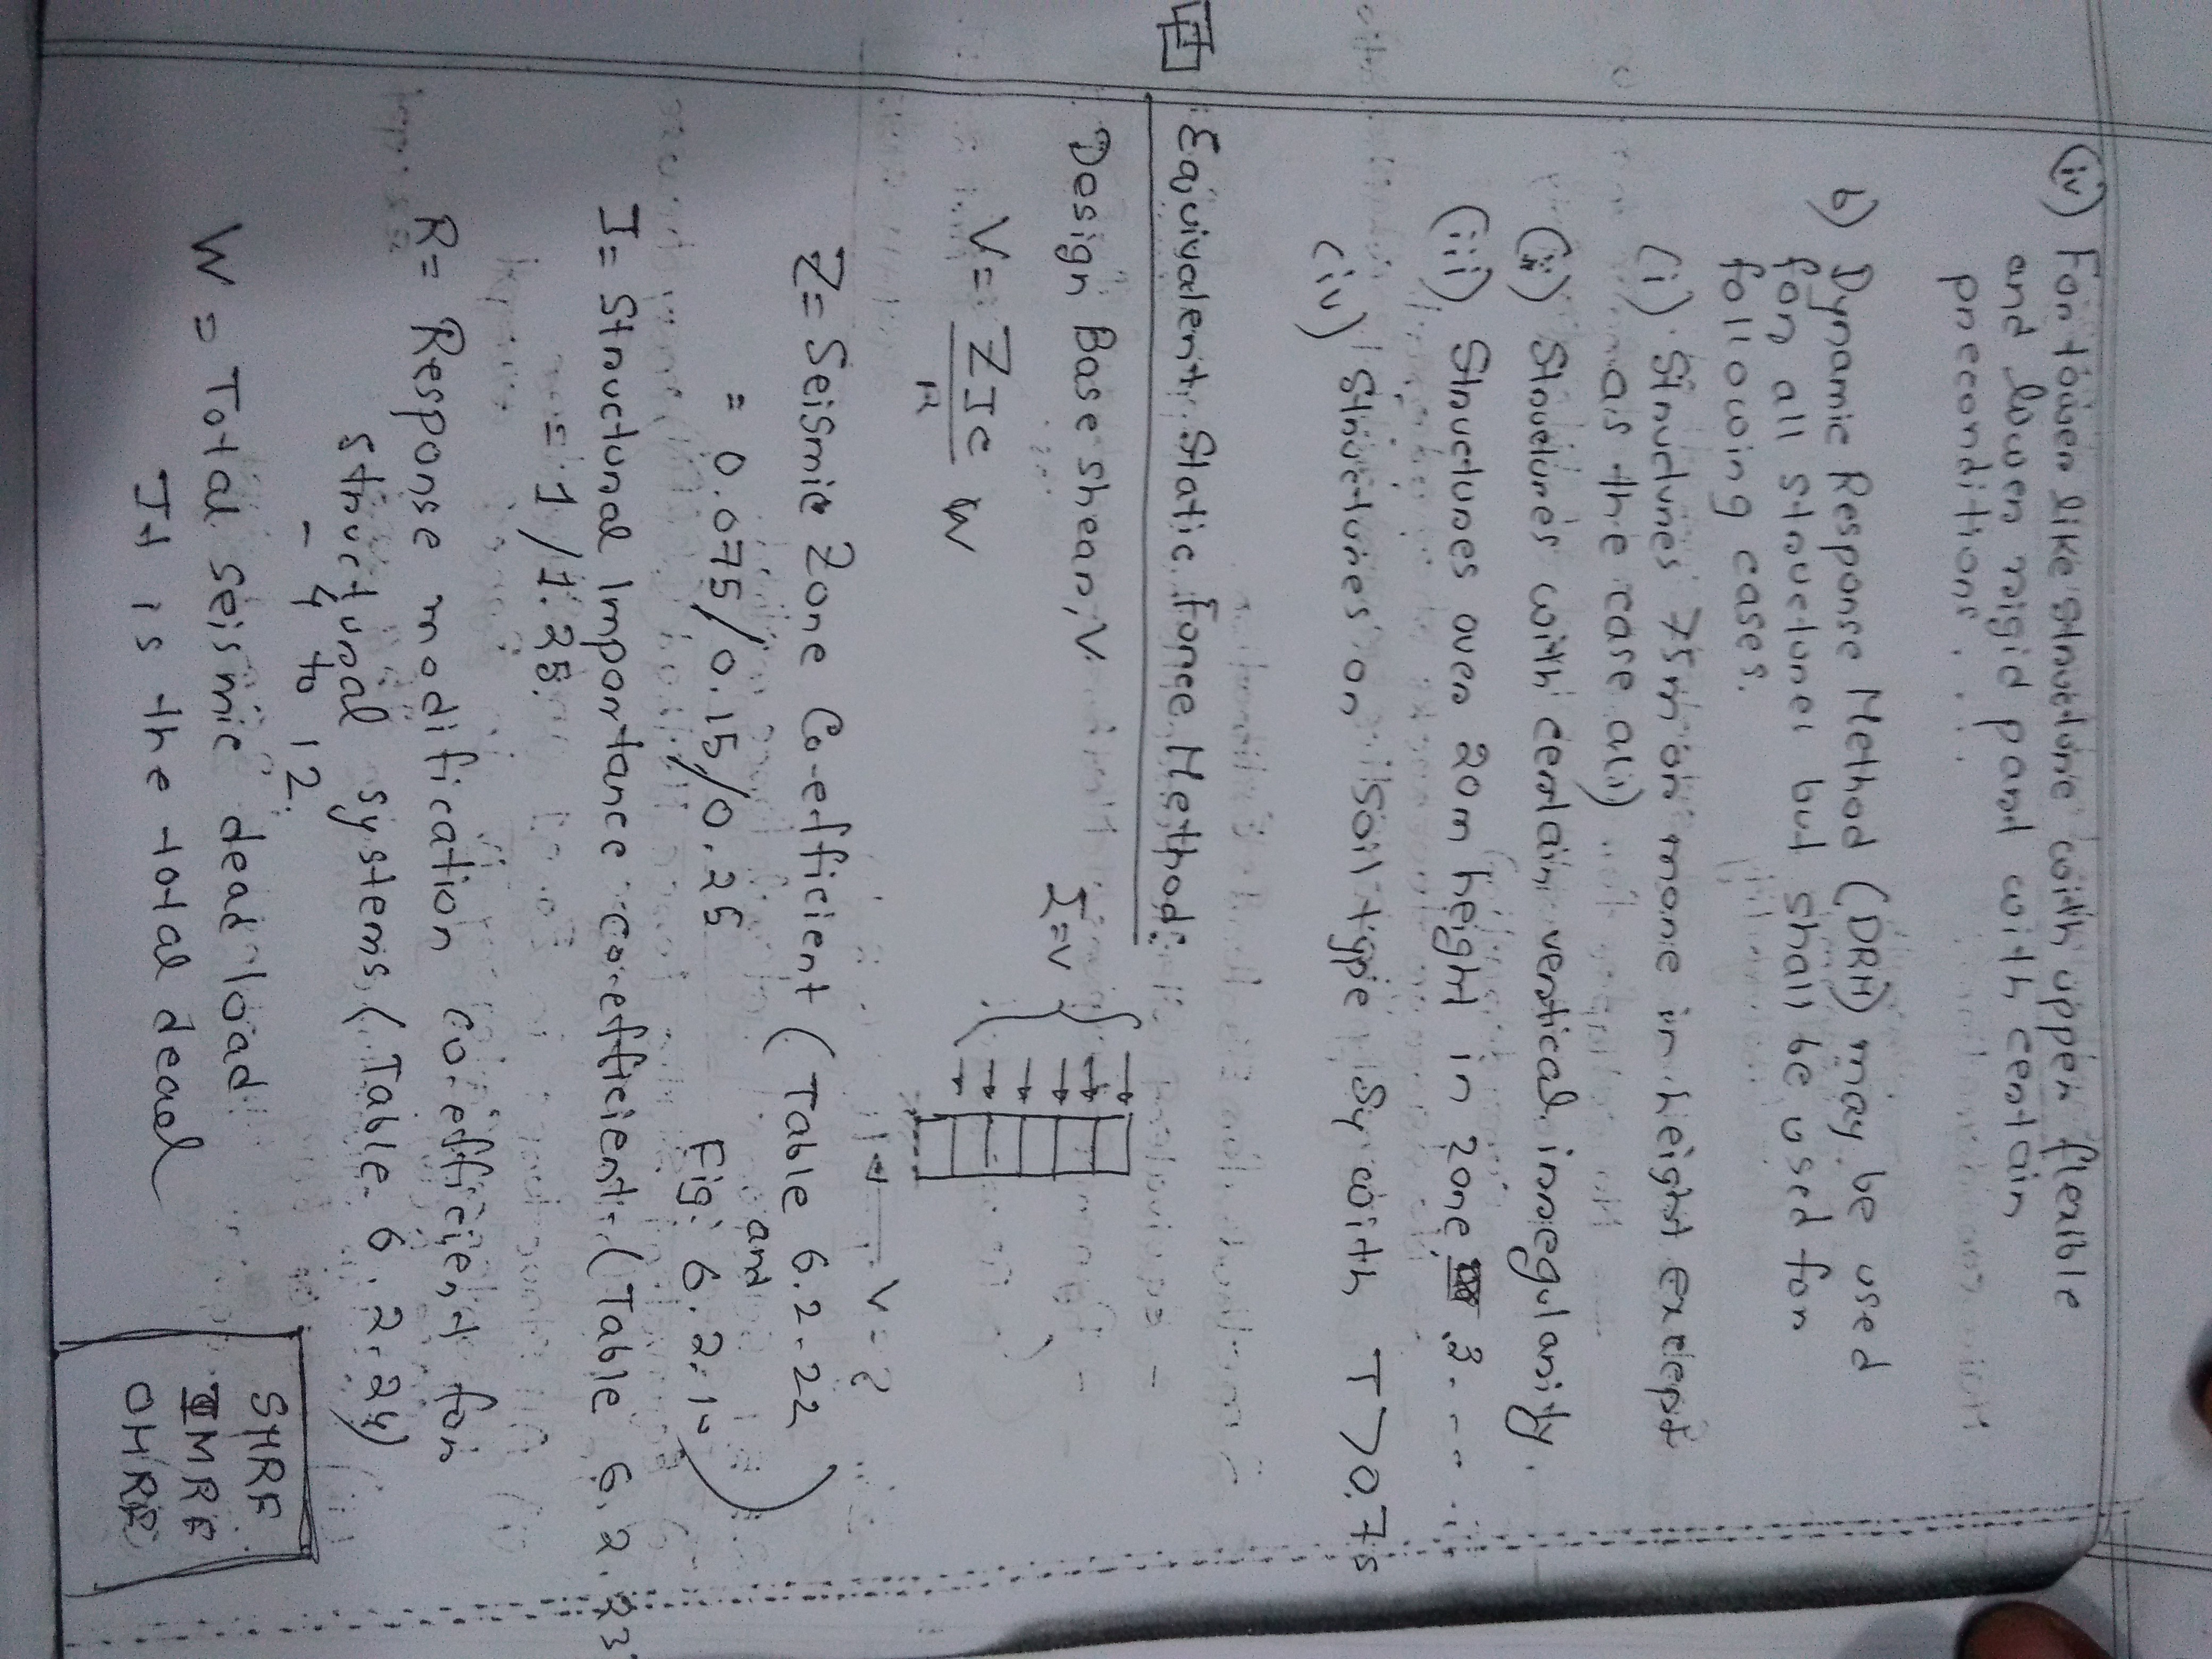 (iv) For tower like structure with upper flexible
and lower rigid part with certain
preconditions.
b) Dynamic Response Method (DRM) may be used
for all structures but shall be used for
following cases.
(i) Structures 75m or more in height except
as the case a(i)
(ii) Structures with certain vertical irregularity.
(iii) Structures over 20m height in zone 3. --
(iv) Structures on soil type S4 with T > 0.7s
Equivalent Static Force Method:
Design Base shear, V
Σ=V
V = ZIC/R W
V = ?
Z = Seismic Zone Co-efficient (Table 6.2.22
and
= 0.075/0.15/0.25
Fig: 6.2.10)
I = Structural Importance co-efficient (Table 6.2.23
= 1/1.25.
R = Response modification co-efficient for
structural systems (Table 6.2.24)
- 4 to 12.
W = Total seismic dead load
It is the total dead
SMRF
IMRF
OMRF